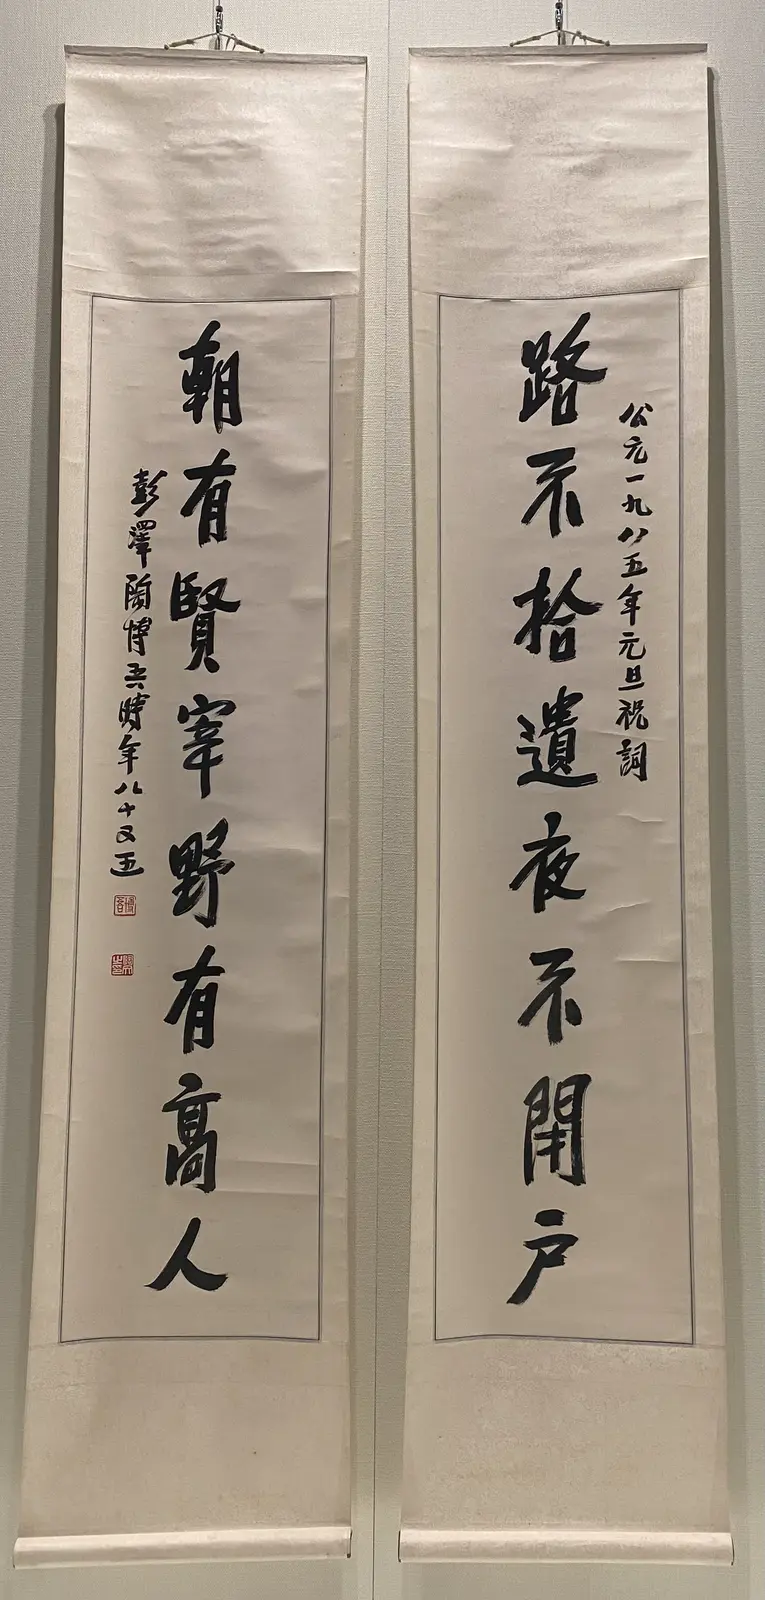 路不拾遺夜不閉户
公元一九八五年元旦祝詞
朝有賢宰野有高人
彭澤陶博吾時年八十又五
博吾